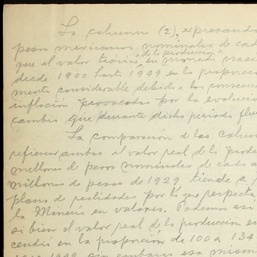 La columna (2), expresando
pesos mexicanos nominales de cada
de la producción
que el valor teórico en moneda nacio
desde 1900 hasta 1949 en la proporción
mente considerable debido a las consecue
inflación provocadas por la evolución
cambios que durante dicho período
La comparación de las colum
refieren ambas al valor real de la produ
millones de pesos nominales de cada a
millones de pesos de 1929 tiende a
plano de realidades por lo que respecta
la Minería en valores. Podemos así
si bien el valor real de la producción
cendió en la proporción de 100 a 134
1949, sin embargo esa misma